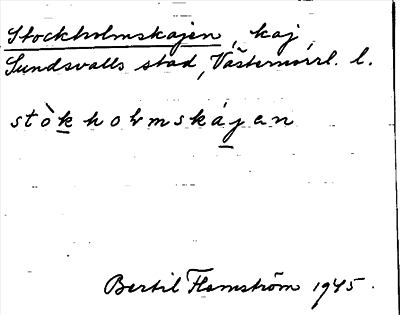 Stockholmskajen, kaj,
Sundsvalls stad, Västernorrl. l.
stòkholmskájan
Bertil Flemström 1945.